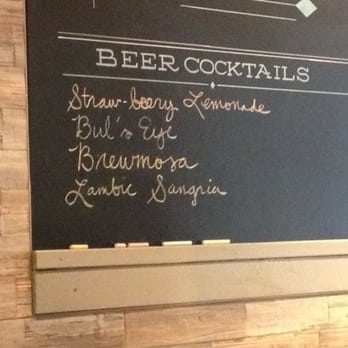 BEER COCKTAILS
Straw-beery Lemonade
Bul's Eye
Brewmosa
Lambic Sangria